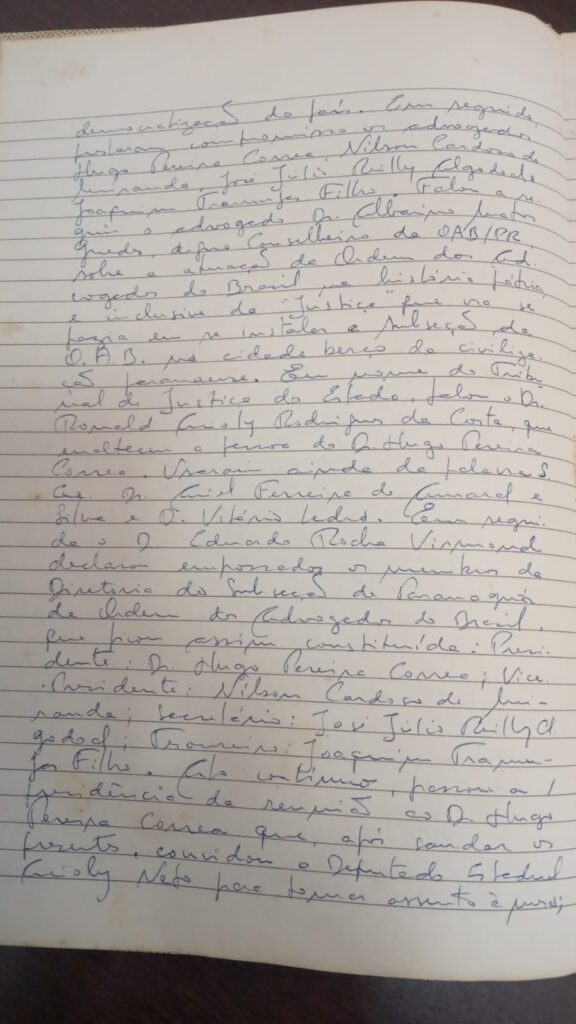 democratização do país. Em seguida,
prestaram compromisso os advogados
Hugo Pereira Correa, Nilson Cardoso de
Miranda, José Júlio
Joaquim Tramujas Filho. Falou a se-
guir o advogado Dr. Albarino Matos
Guedes, digno Conselheiro da OAB/PR,
sobre a atuação da Ordem dos Ad-
vogados do Brasil na história pátria
e inclusive da "Justiça" que ora se
fazia em se instalar a Subseção da
O.A.B. na cidade berço da civiliza-
ção paranaense. Em nome do Tribu-
nal de Justiça do Estado, falou o Dr.
Ronald Accioly Rodrigues da Costa, que
enalteceu a pessoa do Dr. Hugo Pereira
Correa. Usaram ainda da palavra S.
Exa. Dr. Ferreira do Amaral e
Silva e D. Vitório. Em segui-
da o D. Eduardo Rocha Virmond
declarou empossados os membros da
Diretoria da Subseção de Paranaguá
da Ordem dos Advogados do Brasil,
que ficou assim constituída: Presi-
dente: Dr. Hugo Pereira Correa; Vice-
-Presidente: Nilson Cardoso de Mi-
randa; Secretário: José Júlio
Tesoureiro: Joaquim Tramu-
jas Filho. Ato contínuo, passou a
presidência da reunião ao Dr. Hugo
Pereira Correa que, após saudar os
presentes, convidou o Deputado Estadual
Accioly Neto para tomar assento à mesa,